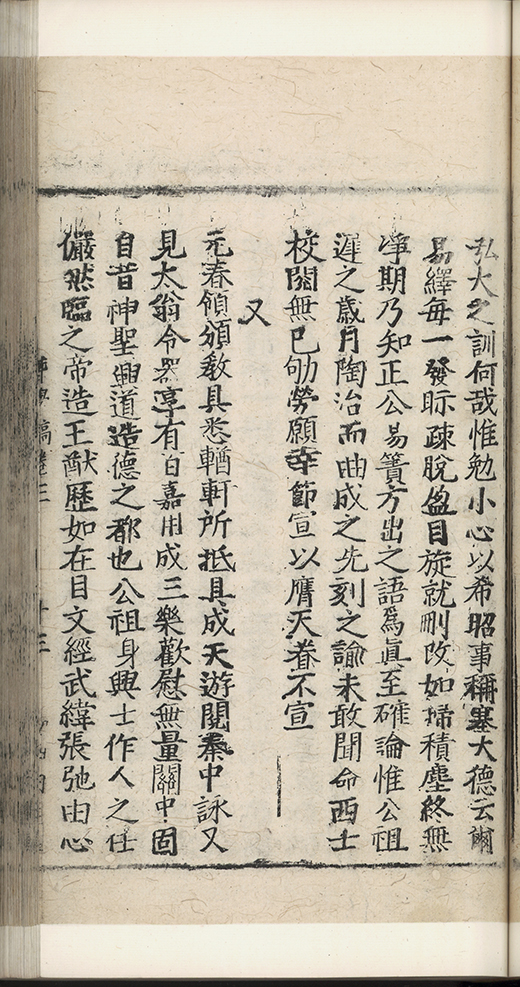 弘大之訓何哉惟勉小心以希昭事稱塞大德云爾
易繹每一發眎疎脫盈目旋就刪改如掃積塵終無
凈期乃知正公易簀方出之語爲眞至確論惟公祖
遲之歲月陶冶而曲成之先刻之諭未敢聞命西士
校閱無已劬勞願幸節宣以膺天眷不宣
又
元春領頒敎具悉輶軒所抵具成天遊閱秦中詠又
見太翁令器享有百嘉用成三樂歡慰無量關中固
自昔神聖興道造德之都也公祖身興士作人之任
儼然臨之帝造王猷歷如在目文經武緯張弛由心
稿卷三
十三